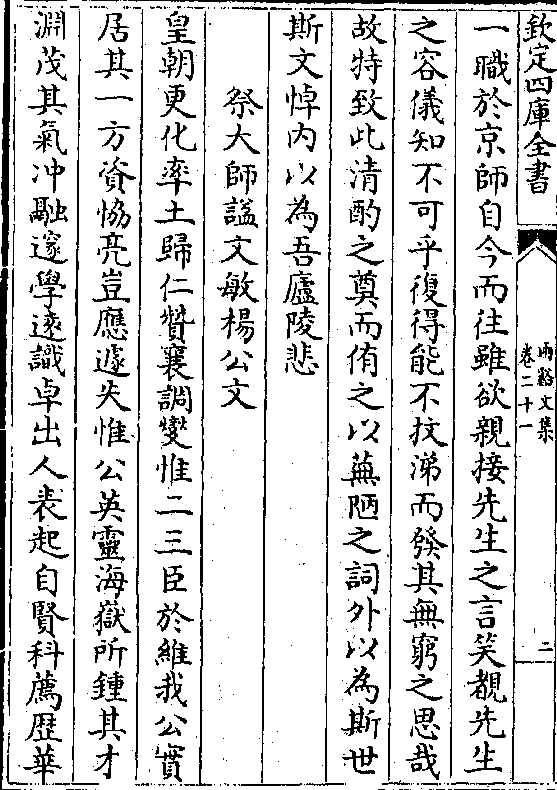 欽定四庫全書
兩谿文集
卷二十一
二
一職於京師自今而往雖欲親接先生之言笑覩先生
之容儀知不可乎復得能不抆涕而發其無窮之思哉
故特致此清酌之奠而侑之以蕪陋之詞外以為斯世
斯文悼内以為吾廬陵悲
祭大師謚文敏楊公文
皇朝更化率土歸仁賛襄調燮惟二三臣於維我公實
居其一方資恊亮豈應遽失惟公英靈海嶽所鍾其才
淵茂其氣冲融邃學逺識卓出人表起自賢科薦歴華